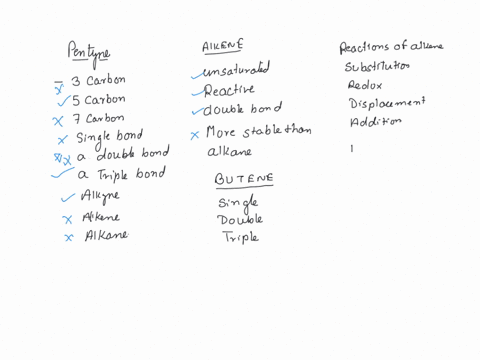 Pentyne
3 Carbon
5 Carbon
7 Carbon
Single bond
a double bond
a Triple bond
Alkyne
Alkene
Alkane
ALKENE
unsaturated
Reactive
double bond
More stable than
alkane
BUTENE
Single
Double
Triple
Reactions of alkene
Substitution
Redox
Displacement
Addition